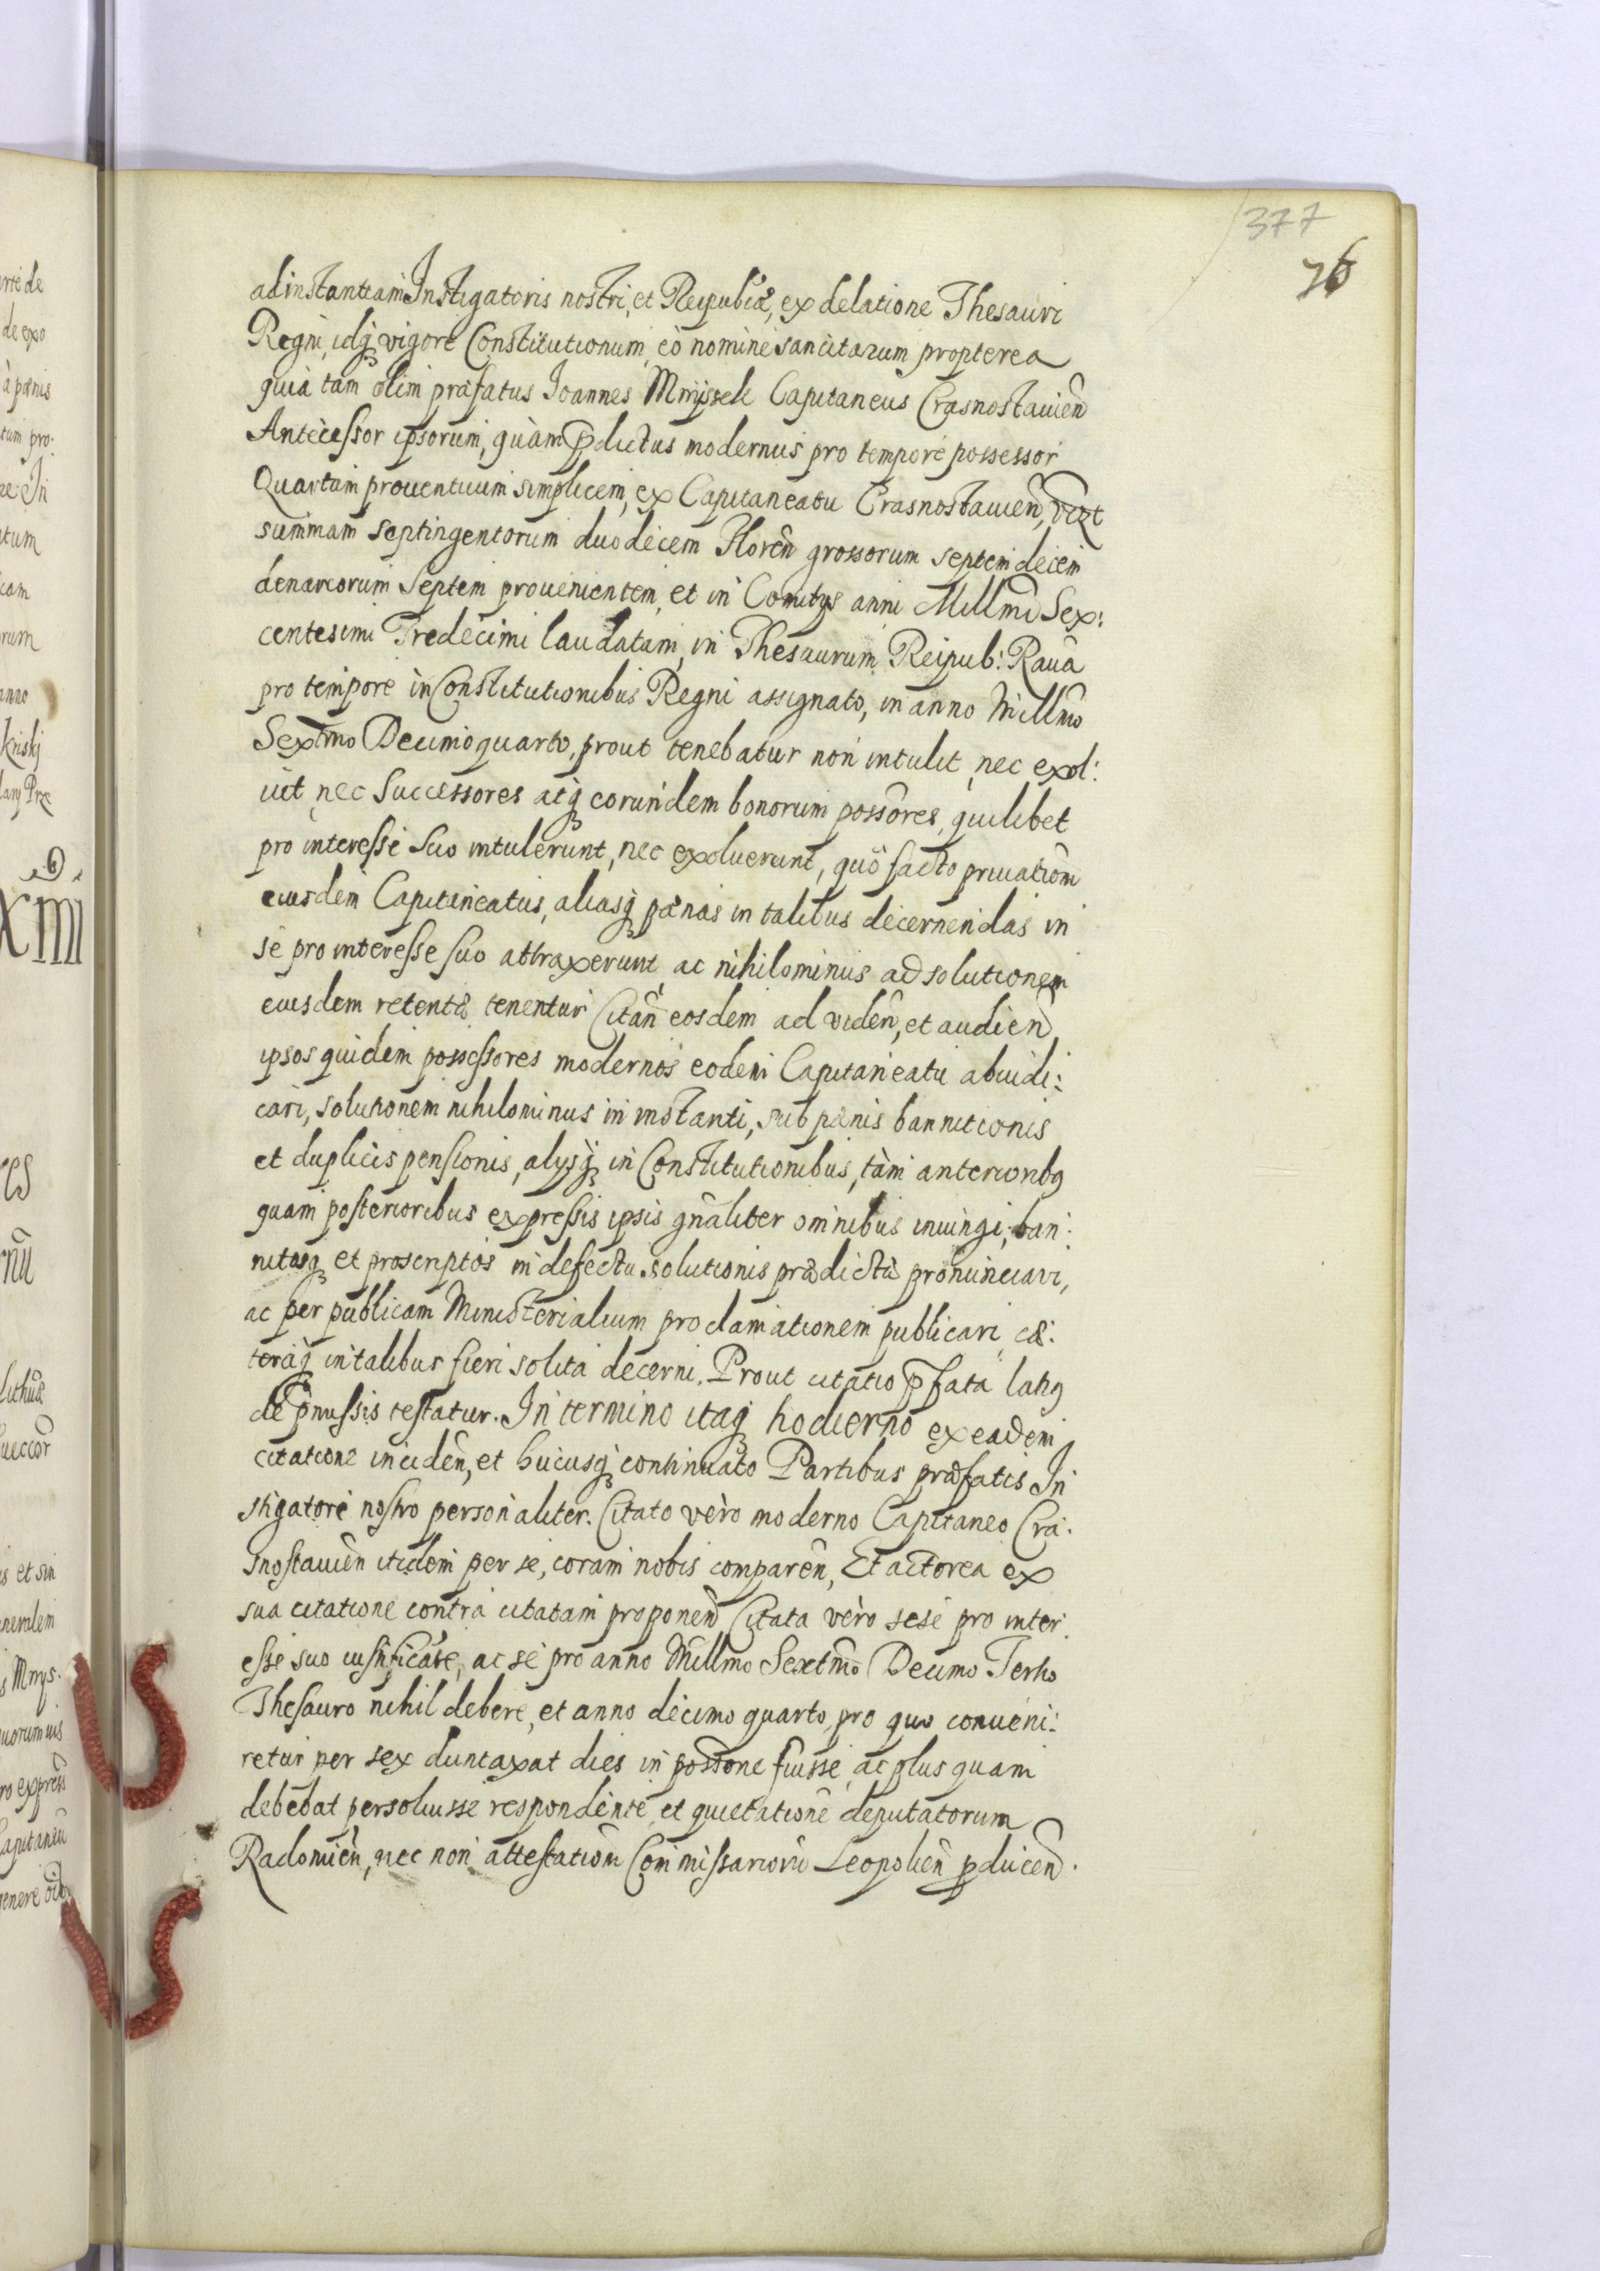 377
76
ad instantiam Instigatoris nostri, et Reipublicæ, ex delatione Thesauri
Regni, idq vigore Constitutionum, eò nominè sancitarum propterea
quià tam olim præfatus Joannes Mnyszek Capitaneus Crasnostauien̄
Antècessor ipsorum, quàm p̄dictus modernus pro temporè possessor
Quartam prouentuum simplicem, ex Capitaneatu Crasnostauien̄, vizt
summam septingentorum duodecem Floren̄ grossorum septemdecem
denariorum Septem prouenientem, et in Comitys anni Millm̄i Sex:
centesimi Tredecimi laudatam, in Thesaurum Reipub: Rauæ
pro temporè in Constitutionibus Regni assignato, in anno Millm̄o
Sextm̄o Decimoquarto, prout tenebatur non intulit, nec exol:
uit, nec Successores atq corundem bonorum possōres, quilibet
pro interesse suo intulerunt, nec exoluerunt, quò facto priuationi
eiusdem Capitaneatus, aliasq pœnas in talibus decernendas in
sè pro interesse suo attraxerunt, ac nihilominus ad solutionem
eiusdem retentæ tenentur Citan̄ eosdem ad viden̄, et audien̄,
ipsos quidem possessores modernos eodem Capitaneatu abiudi:
cari, solutionem nihilominus in instanti, sub pœnis bannitionis
et duplicis pensionis, alysq in Constitutionibus, tàm anterioribꝯ
quam posterioribus expressis ipsis gn̄aliter omnibus iniungi, ban:
nitosq et proscriptos in defectu solutionis prædictæ pronunciari,
ac per publicam Ministerialium proclamationem publicari, cæ:
teraq in talibus fieri solita decerni. Prout citatio p̄fata latiꝯ
de p̄missis testatur. In termino itaq hodierno ex eadem
citatione inciden̄, et hucusq continuato Partibus præfatis In
stigatorè nostro personaliter. Citato verò moderno Capitaneo Cra:
snostauien̄ itidem per se, coram nobis comparen̄, Et actorea ex
sua citationè contrà citatam proponen̄ Citata verò sesè pro inter:
esse suo iustificarè, ac sè pro anno Millm̄o Sextm̄o Decimo Tertio
Thesauro nihil deberè, et anno dècimo quarto pro quo conueni:
retur per sex duntaxat dies in possōne fuisse, ac plus quam
debebat persoluisse respondentè et quietationē deputatorum
Radomien̄, nec non attestation̄ Commissariorū Leopolien̄ p̄ducen̄.